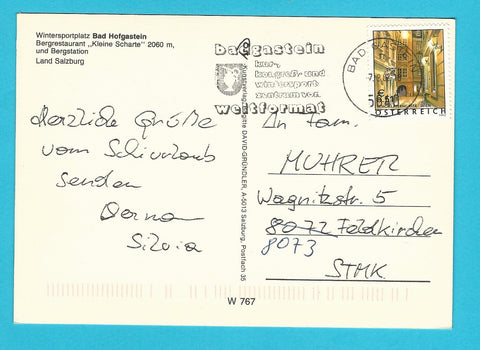 Wintersportplatz Bad Hofgastein
Bergrestaurant „Kleine Scharte" 2060 m,
und Bergstation
Land Salzburg
badgastein
kur-,
kongreß- und
wintersport-
zentrum von
weltformat
BAD GAST
ÖSTERREICH
Herzliche Grüße
vom Schiurlaub
senden
Silvia
Kunstverlagsagentie DAVID-GRÜNDLER, A-5013 Salzburg, Postfach 35
An Fam.
MUHRER
Wagnitzstr. 5
8072 Feldkirchen
8073
STMK
W 767